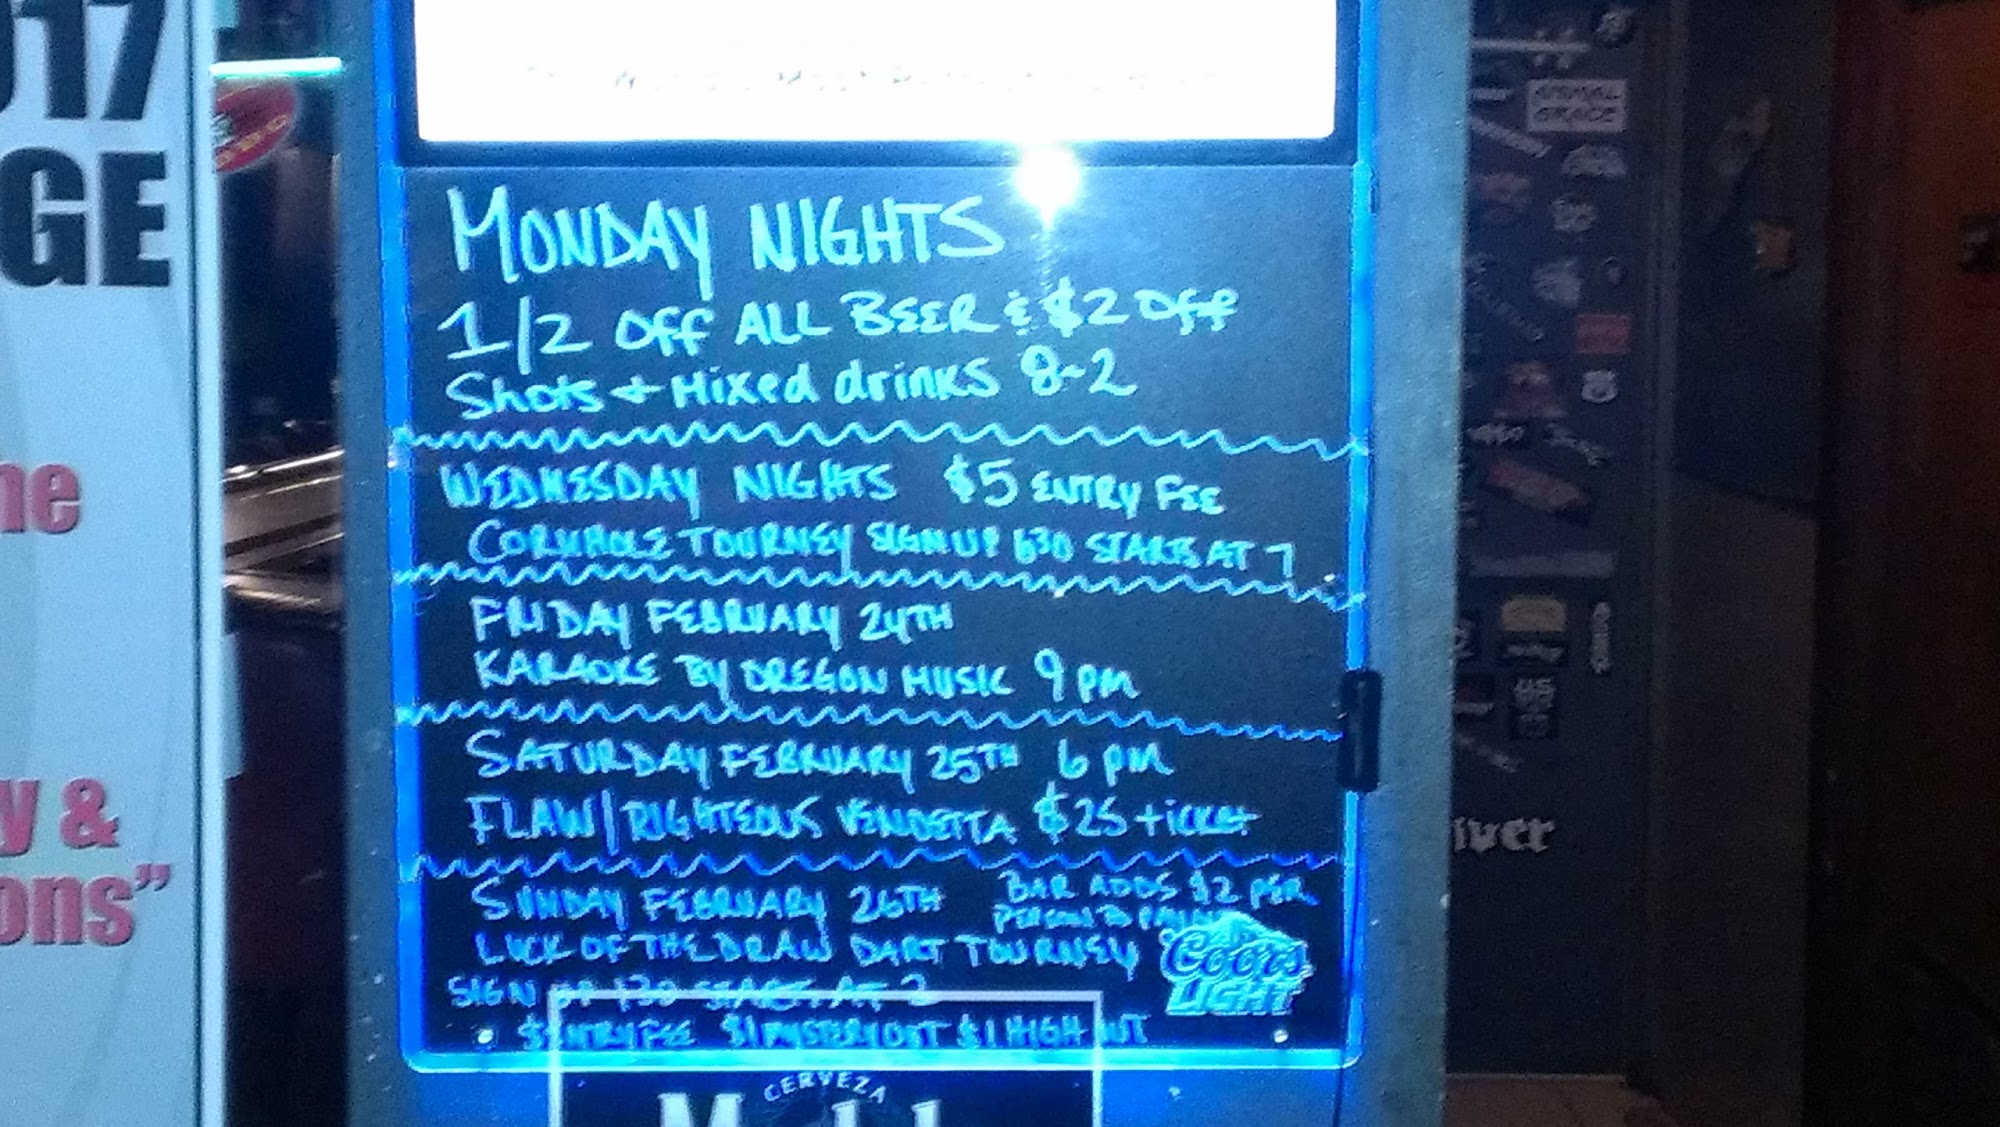 017
GE
MONDAY NIGHTS
1/2 Off ALL BEER & $2 Off
Shots + Mixed drinks 8-2
WEDNESDAY NIGHTS $5 ENTRY FEE
CORNHOLE TOURNEY SIGN UP 630 STARTS AT 7
FRIDAY FEBRUARY 24TH
KARAOKE BY OREGON MUSIC 9 PM
SATURDAY FEBRUARY 25TH 6 PM
FLAW/RIGHTEOUS VENDETTA $25 ticket
SUNDAY FEBRUARY 26TH
BAR ADDS $2 PER
PERSON TO
LUCK OF THE DRAW DART TOURNEY
SIGN UP 130 STARTS AT 2
ENTRY FEE $1 MYSTERY OUT $1 HIGH OUT
Coors
LIGHT
CERVEZA
ne
y &
ons”
iver